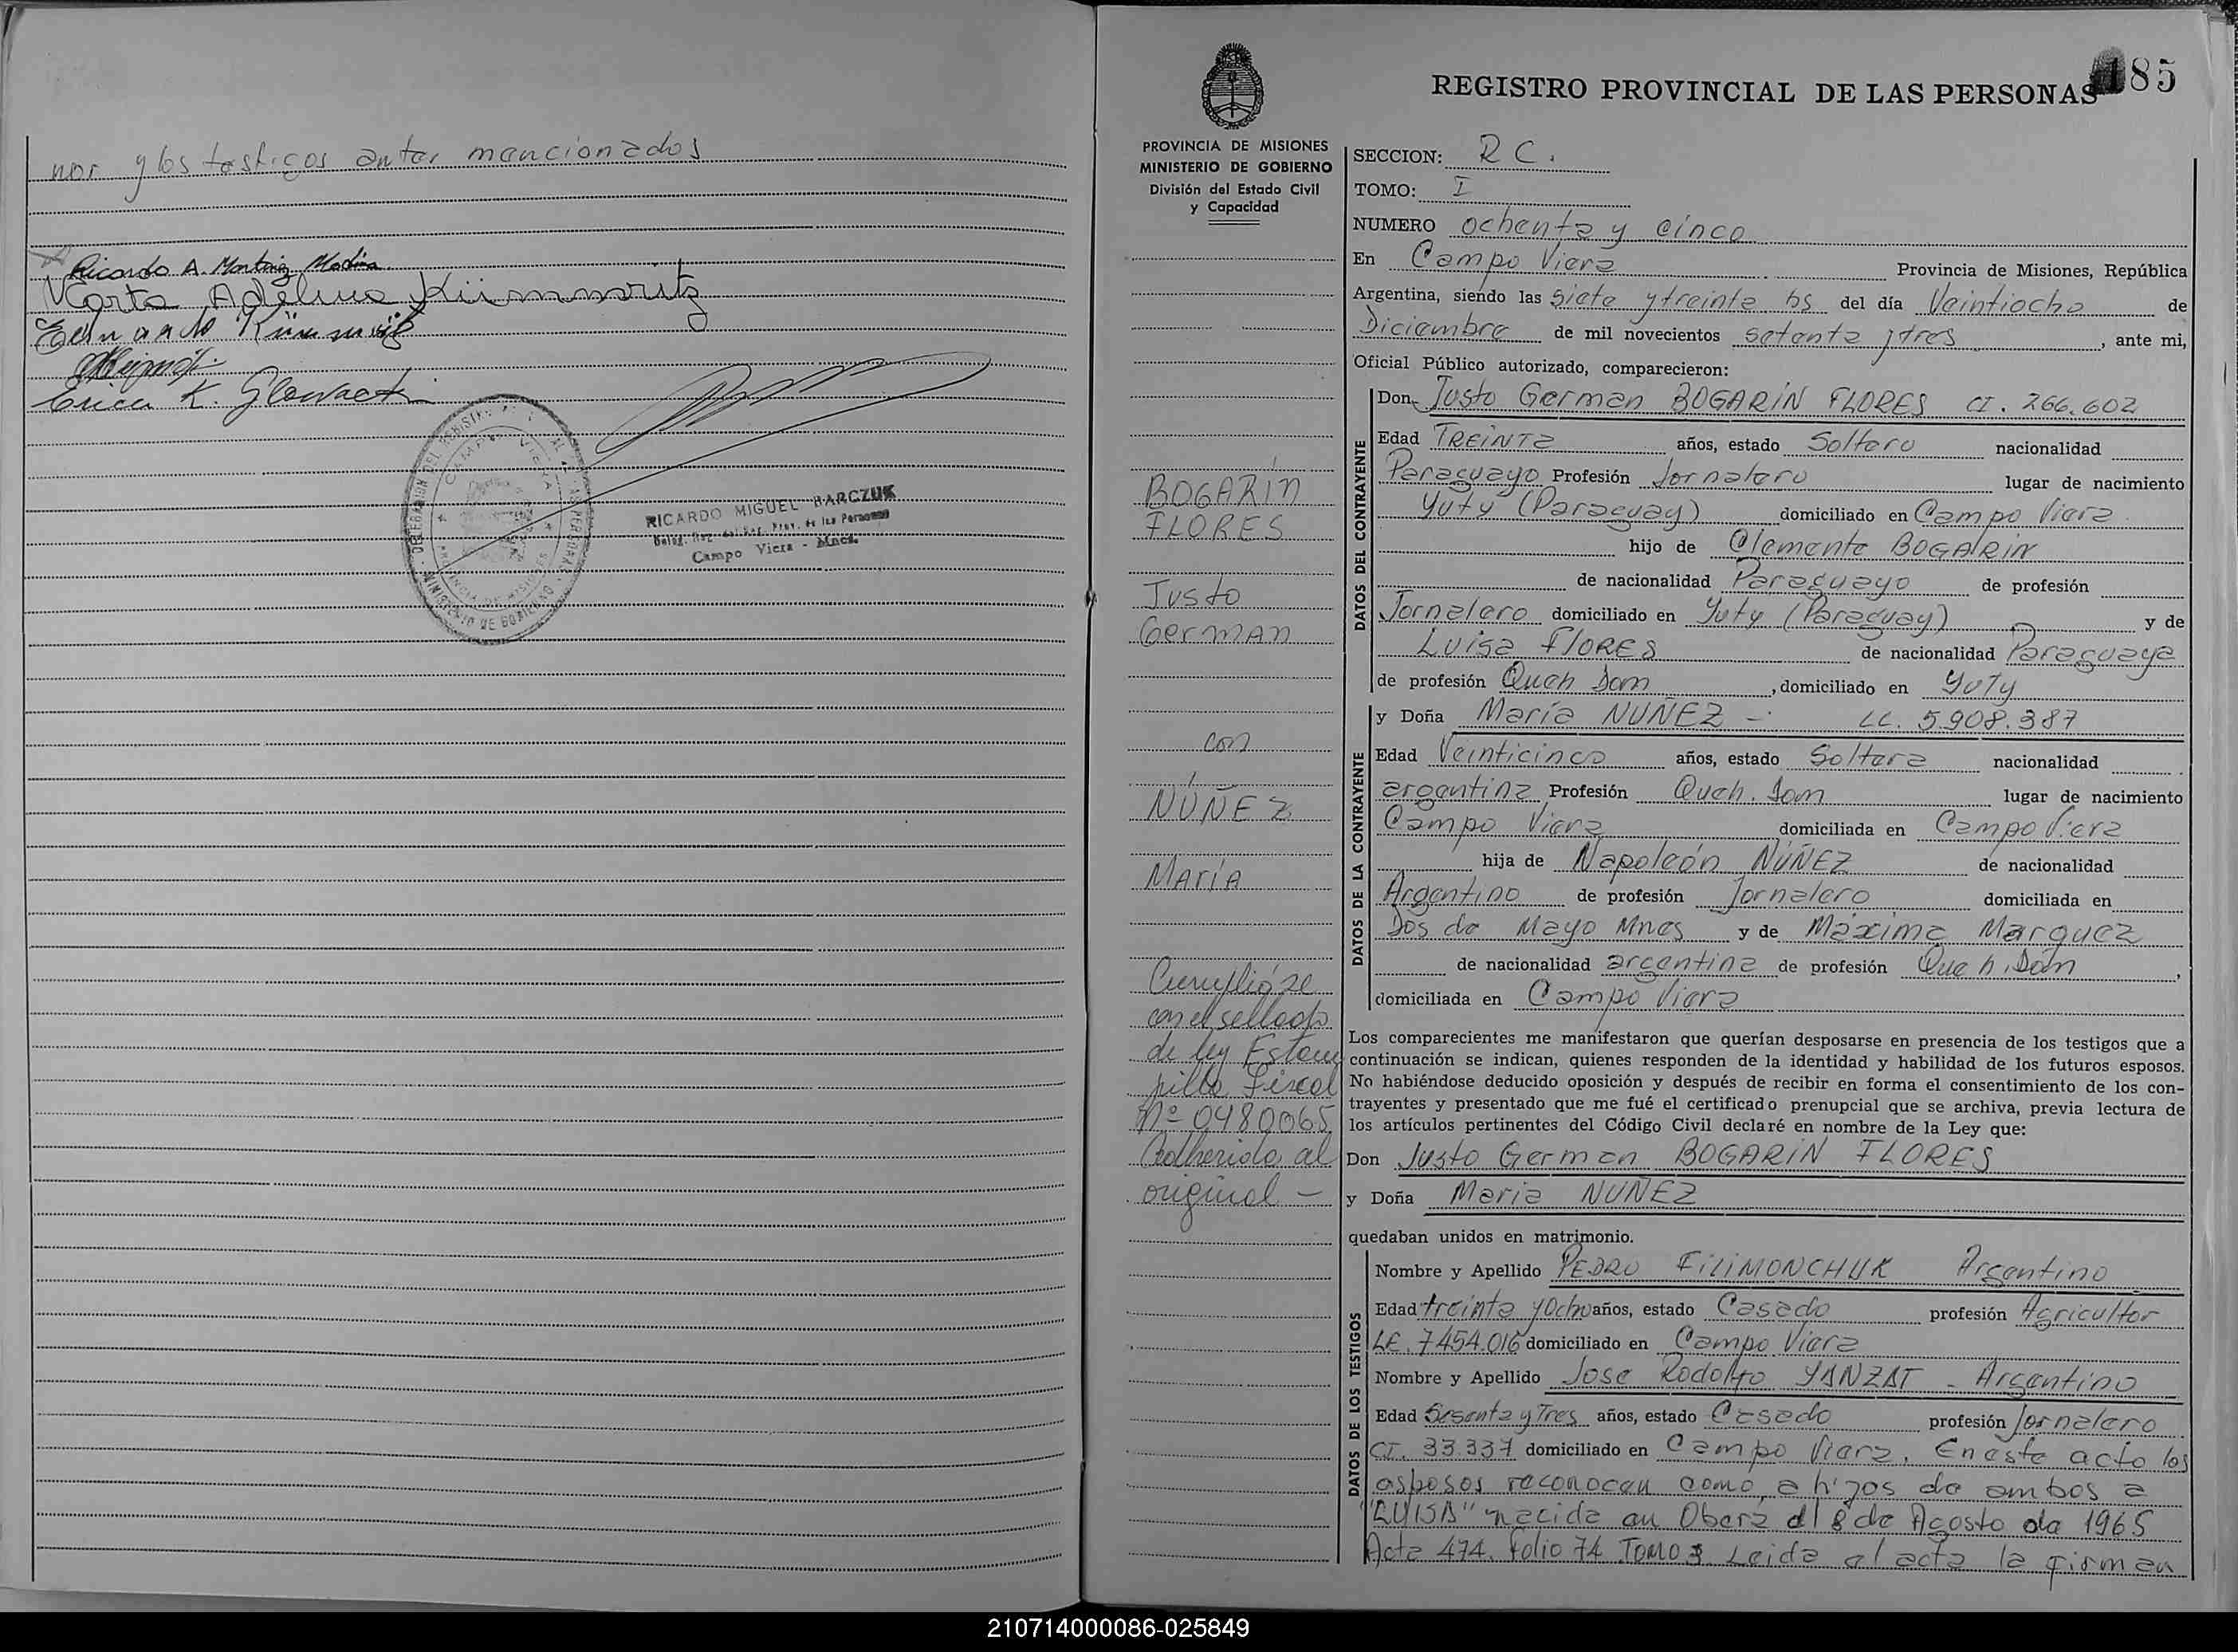 nor y los testigos antes mencionados
Ricardo A. Martinez Medina
Marta Adelina Kümmritz
Kümmritz
Erica K. Glowacki
CAMPO VIERA
MINISTERIO DE GOBIERNO
RICARDO MIGUEL HARCZUK
Campo Viera - Mnes.
185
REGISTRO PROVINCIAL DE LAS PERSONAS
PROVINCIA DE MISIONES
MINISTERIO DE GOBIERNO
División del Estado Civil
y Capacidad
BOGARÍN
FLORES
Justo
German
con
NÚÑEZ
María
Cumplióse
con el sellado
de ley Estam
pilla Fiscal
Nº 0480065
Adherida al
original —
SECCION: R C.
TOMO: I
NUMERO ochenta y cinco
En Campo Viera Provincia de Misiones, República
Argentina, siendo las Siete y treinta hs del día Veintiocho de
Diciembre de mil novecientos setenta y tres, ante mi,
Oficial Público autorizado, comparecieron:
DATOS DEL CONTRAYENTE
Don Justo German BOGARÍN FLORES CI. 266.602
Edad TREINTA años, estado Soltero nacionalidad
Paraguayo Profesión Jornalero lugar de nacimiento
Yuty (Paraguay) domiciliado en Campo Viera
hijo de Clemente BOGARÍN
de nacionalidad Paraguayo de profesión
Jornalero domiciliado en Yuty (Paraguay) y de
Luisa FLORES de nacionalidad Paraguaya
de profesión Queh Dom, domiciliado en Yuty
DATOS DE LA CONTRAYENTE
y Doña María NUÑEZ - LC. 5.908.387
Edad Veinticinco años, estado Soltera nacionalidad
argentina Profesión Queh. Dom lugar de nacimiento
Campo Viera domiciliada en Campo Viera
hija de Napoleón NÚÑEZ de nacionalidad
Argentino de profesión Jornalero domiciliada en
Dos de Mayo Mnes y de Máxima Marquez
de nacionalidad argentina de profesión Que h. Dom,
domiciliada en Campo Viera
Los comparecientes me manifestaron que querían desposarse en presencia de los testigos que a
continuación se indican, quienes responden de la identidad y habilidad de los futuros esposos.
No habiéndose deducido oposición y después de recibir en forma el consentimiento de los con-
trayentes y presentado que me fué el certificado prenupcial que se archiva, previa lectura de
los artículos pertinentes del Código Civil declaré en nombre de la Ley que:
Don Justo German BOGARÍN FLORES
y Doña Maria NUÑEZ
quedaban unidos en matrimonio.
DATOS DE LOS TESTIGOS
Nombre y Apellido PEDRO FILIMONCHUK Argentino
Edad treinta y Ocho años, estado Casado profesión Agricultor
LE. 7454.016 domiciliado en Campo Viera
Nombre y Apellido Jose Rodolfo YANZAT - Argentino
Edad Sesenta y Tres años, estado Casado profesión Jornalero
CI. 33.337 domiciliado en Campo Viera. En este acto los
esposos reconocen como a hijos de ambos a
"LUISA" nacida en Oberá el 8 de Agosto de 1965
Acta 474. Folio 74 Tomo 3 Leida el acta la firman
210714000086-025849